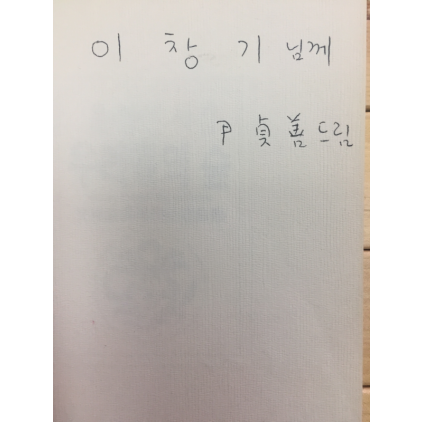 이 창 기 님께
尹 貞 善 드림